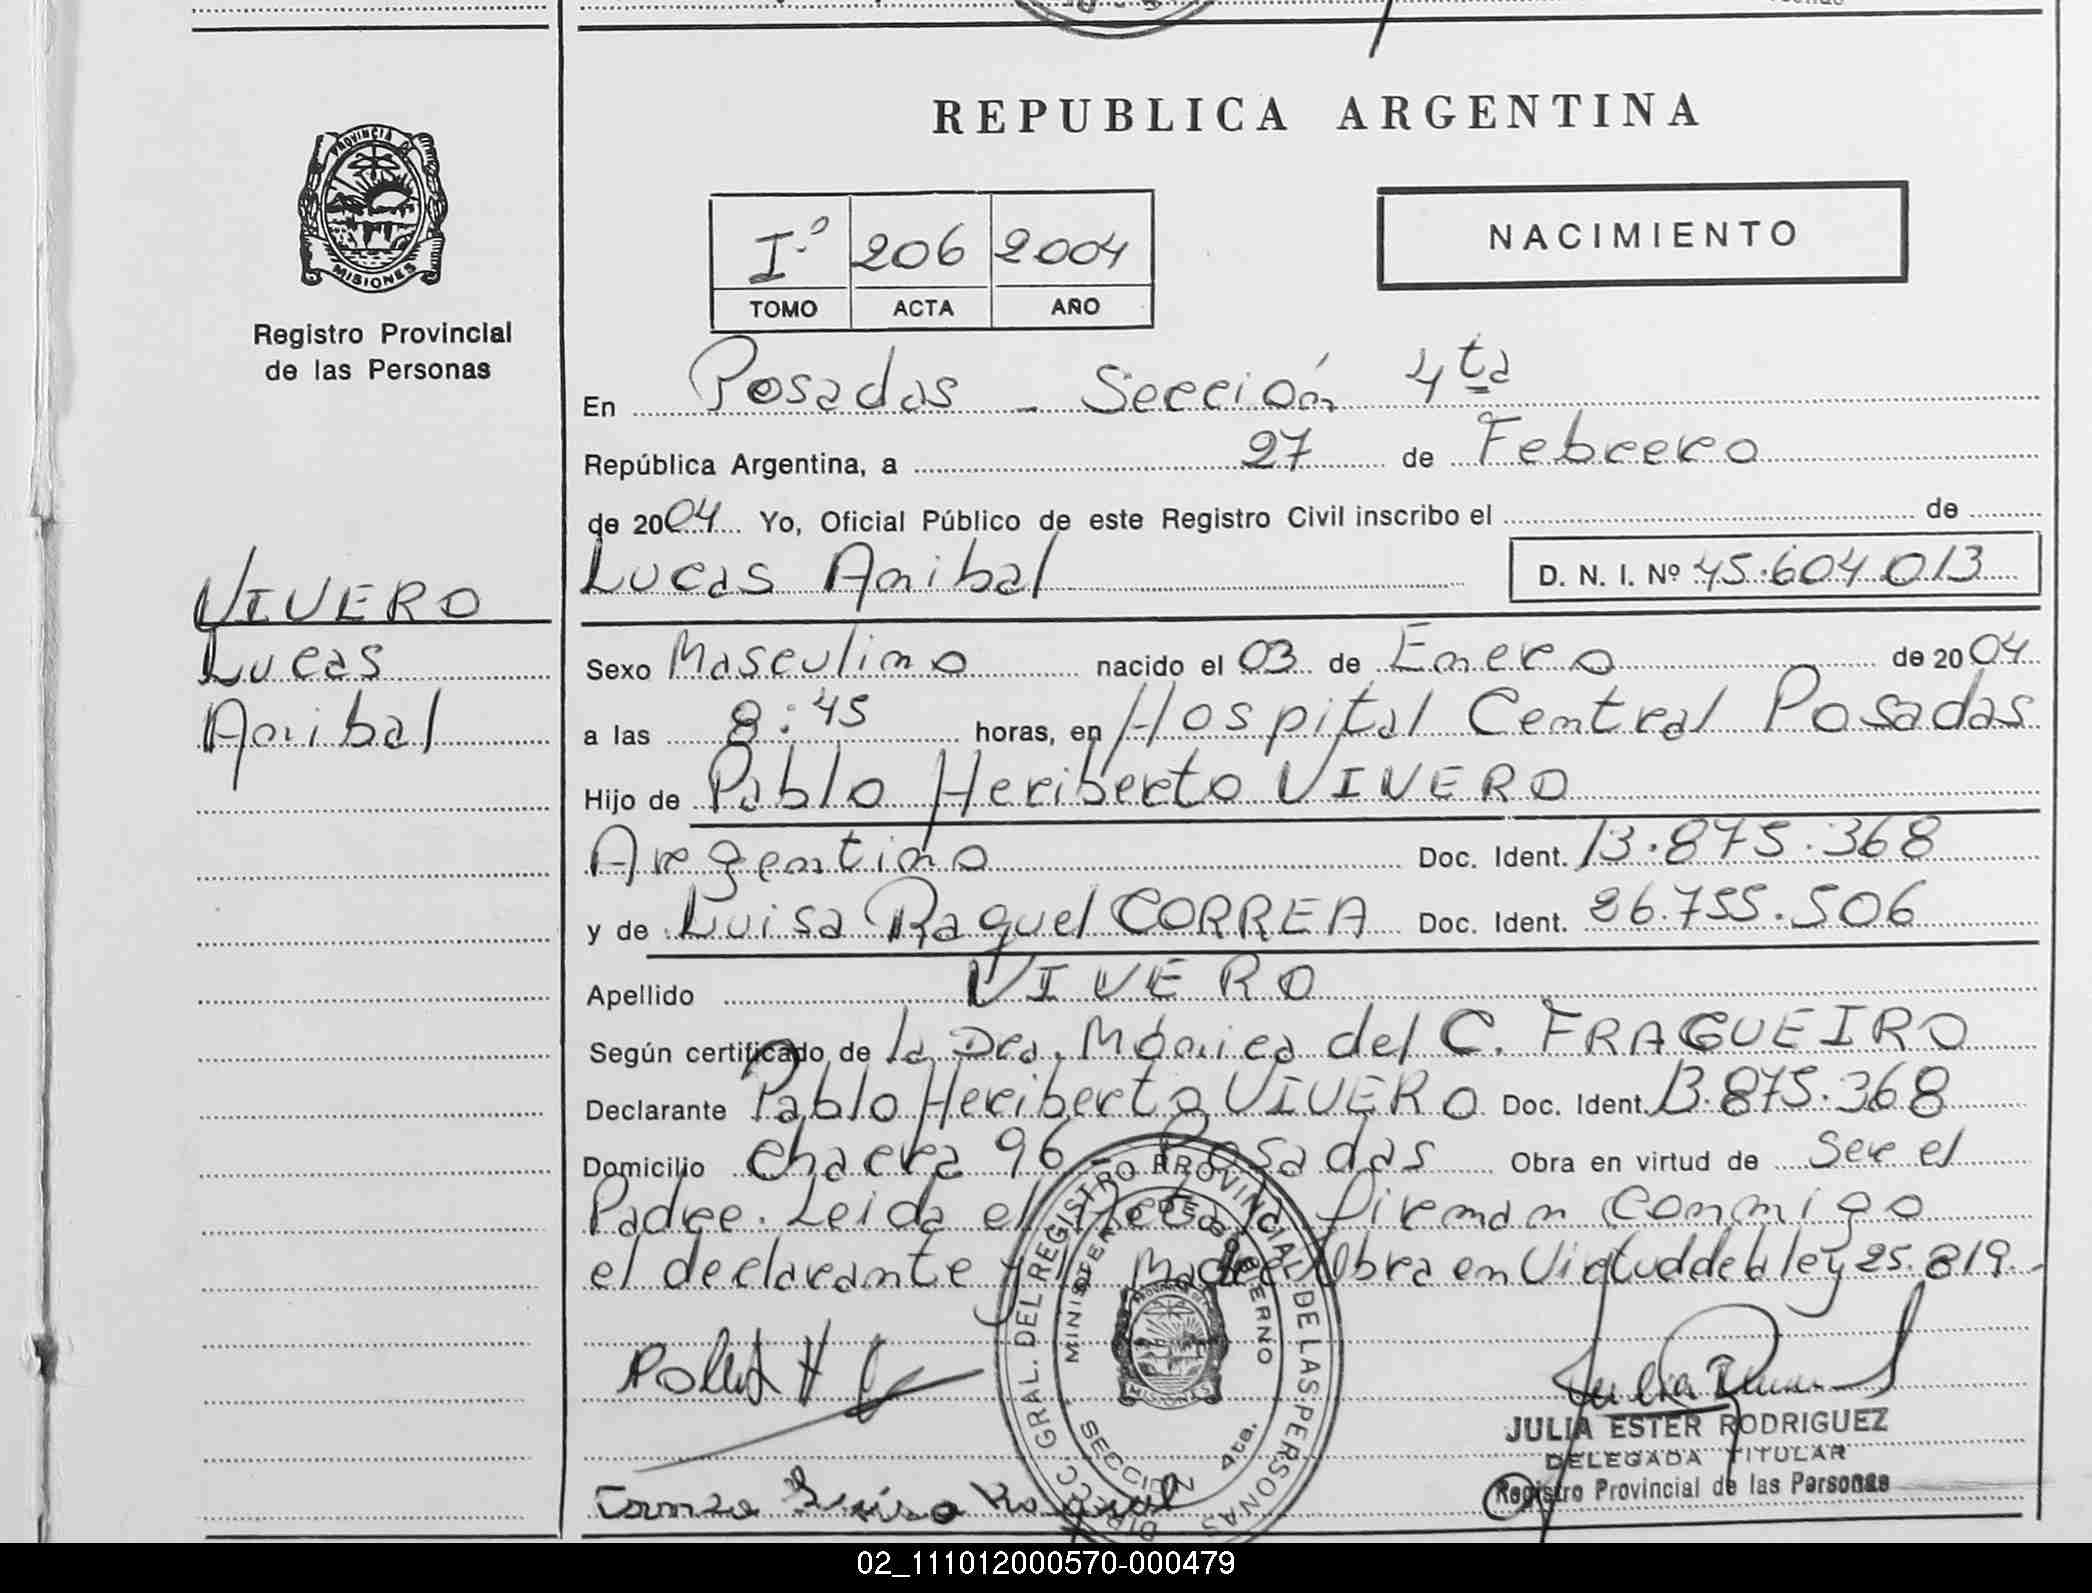 REPUBLICA ARGENTINA
PROVINCIA DE
MISIONES
Registro Provincial
de las Personas
I.º 206 2004
TOMO ACTA AÑO
NACIMIENTO
En Posadas - Sección 4ta
República Argentina, a 27 de Febrero
de 2004 Yo, Oficial Público de este Registro Civil inscribo el de
Lucas Anibal D. N. I. Nº 45.604.013
VIVERO
Lucas
Anibal
Sexo Masculino nacido el 03 de Enero de 2004
a las 8:45 horas, en Hospital Central Posadas
Hijo de Pablo Heriberto VIVERO
Argentino Doc. Ident. 13.875.368
y de Luisa Raquel CORREA Doc. Ident. 26.755.506
Apellido VIVERO
Según certificado de la Dra. Mónica del C. FRAGUEIRO
Declarante Pablo Heriberto VIVERO Doc. Ident. 13.875.368
Domicilio Chacra 96 - Posadas Obra en virtud de Ser el
Padre. Leida el Acta la firman conmigo
el declarante y la Madre. Obra en Virtud de la ley 25.819.-
DIRECC. GRAL. DEL REGISTRO PROVINCIAL DE LAS PERSONAS
MINISTERIO DE GOBIERNO
PROVINCIA DE
MISIONES
SECCION 4ta.
JULIA ESTER RODRIGUEZ
DELEGADA TITULAR
Registro Provincial de las Personas
02_111012000570-000479